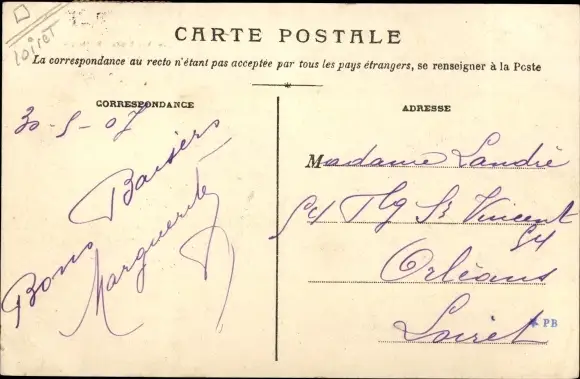 Loiret
CARTE POSTALE
La correspondance au recto n'étant pas acceptée par tous les pays étrangers, se renseigner à la Poste
CORRESPONDANCE
30-5-07
Bons Baisers
Marguerite
ADRESSE
Madame Landré
54 Fbg St Vincent
54
Orléans
Loiret
PB